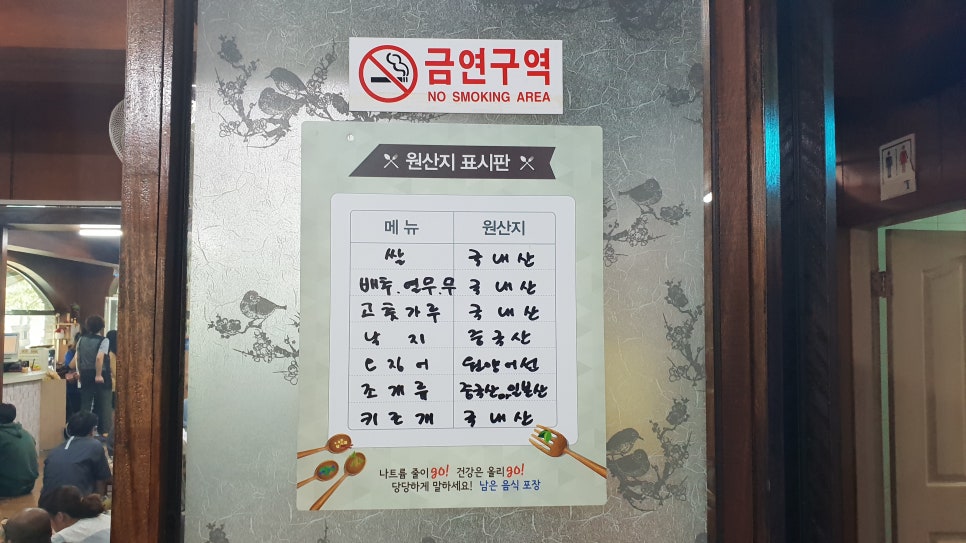 금연구역
NO SMOKING AREA
원산지 표시판
메뉴 원산지
쌀 국내산
배추.열무.무 국내산
고춧가루 국내산
낙지 중국산
오징어 원양어선
조개류 중국산or일본산
키조개 국내산
나트륨 줄이go! 건강은 올리go!
당당하게 말하세요! 남은 음식 포장